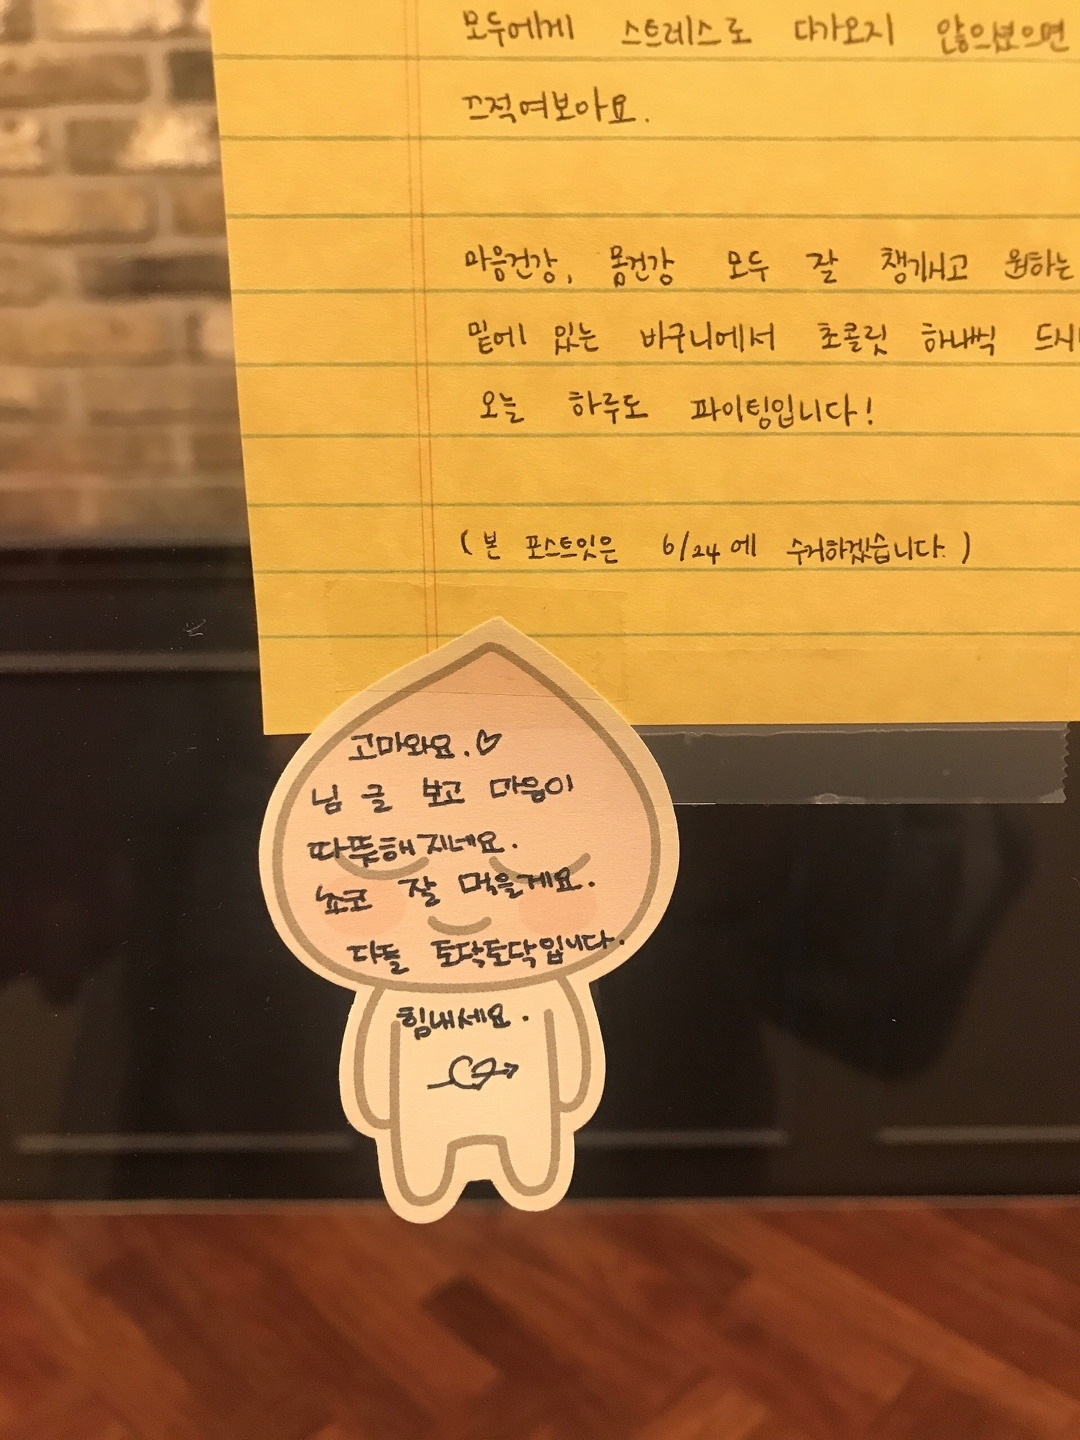 모두에게 스트레스로 다가오지
끄적여보아요.
마음건강, 몸건강 모두 잘 챙기시고 원하는
밑에 있는 바구니에서 초콜릿 하나씩 드시
오늘 하루도 파이팅입니다!
(본 포스트잇은 6/24에 수거하겠습니다.)
고마와요.♡
님 글 보고 마음이
따뜻해지네요.
쵸코 잘 먹을게요.
다들 토닥토닥입니다.
힘내세요.